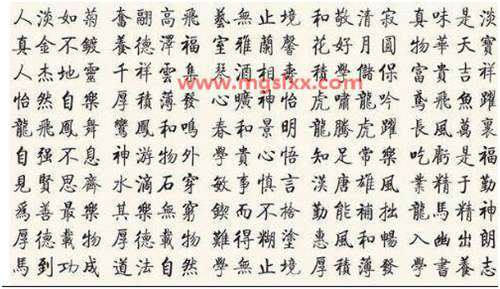 人淡如菊 奮翮高飛 藝無止境 和敬清寂 真味是淡
真金不鍍 養德澤福 室雅蘭馨 花好月圓 物華天寶
www.mgslxx.com
人杰地靈 千祥雲集 積學儲保 富貴吉祥
怡然自樂 厚積薄發 心曠神怡 虎嘯龍吟 鳶飛魚躍
龍飛鳳舞 鸞鳳和鳴 春和景明 龍騰虎躍 長風萬裏
自强不息 神游物外 學貴心悟 知足常樂 吃虧是福
見賢思齊 水滴石穿 敏事慎言 漢唐雄風 業精于勤
爲善最樂 其樂無窮 鍥而不捨 勤能補拙 龍馬精神
厚德載物 厚德載物 難得糊塗 惠風和暢 入幽出朗
馬到功成 道法自然 學無止境 厚積薄發 學書養志